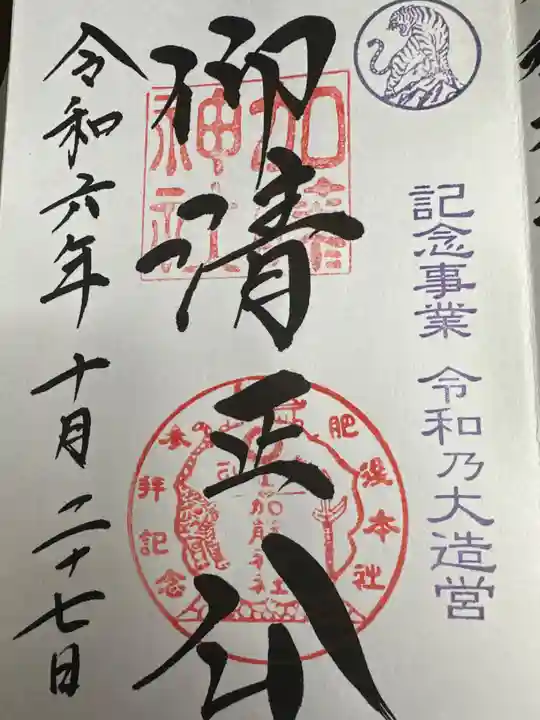 記念事業 令和乃大造営
加藤神社
御清正公
肥後本社
参拝記念
加藤神社
令和六年 十月二十七日